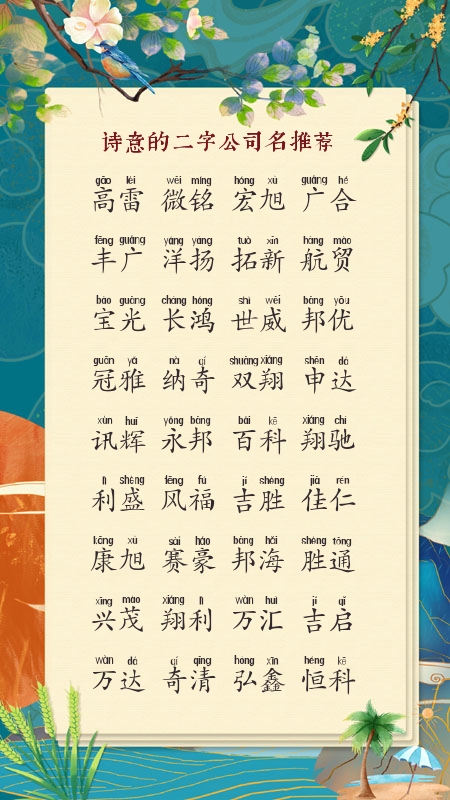 诗意的二字公司名推荐
gāo léi wēi míng hóng xù guǎng hé
高雷 微铭 宏旭 广合
fēng guǎng yáng yáng tuò xīn háng mào
丰广 洋扬 拓新 航贸
bǎo guāng cháng hóng shì wēi bāng yōu
宝光 长鸿 世威 邦优
guān yǎ nà qí shuāng xiáng shēn dá
冠雅 纳奇 双翔 申达
xùn huī yǒng bāng bǎi kē xiáng chí
讯辉 永邦 百科 翔驰
lì shèng fēng fú jí shèng jiā rén
利盛 风福 吉胜 佳仁
kāng xù sài háo bāng hǎi shèng tōng
康旭 赛豪 邦海 胜通
xīng mào xiáng lì wàn huì jí qǐ
兴茂 翔利 万汇 吉启
wàn dá qí qīng hóng xīn héng kē
万达 奇清 弘鑫 恒科